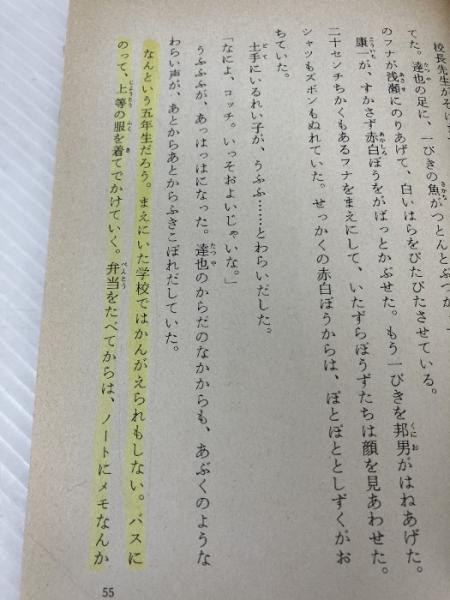 校長先生がそ
てた。達也の足に、一ぴきの魚がつんとぶつか
のフナが浅瀬にのりあげて、白いはらをぴたぴたさせている。
康一が、すかさず赤白ぼうをがばっとかぶせた。もう一ぴきを邦男がはねあげた。
二十センチちかくもあるフナをまえにして、いたずらぼうずたちは顔を見あわせた。
シャツもズボンもぬれていた。せっかくの赤白ぼうからは、ぽとぽととしずくがお
ちていた。
土手にいるれい子が、うふふ……とわらいだした。
「なによ、コッチ。いっそおよいじゃいな。」
うふふふが、あっはっはになった。達也のからだのなかからも、あぶくのような
わらい声が、あとからあとからふきこぼれだしていた。
なんという五年生だろう。まえにいた学校ではかんがえられもしない。バスに
のって、上等の服を着てでかけていく。弁当をたべてからは、ノートにメモなんか
55